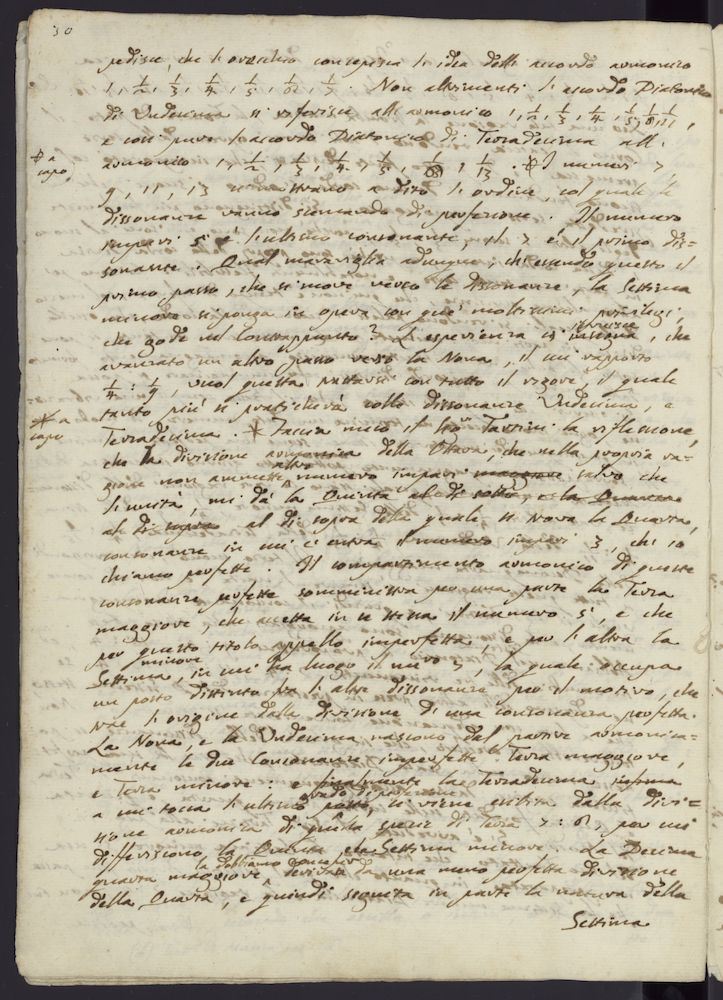 30
pedisce, che l'orecchio concepisca l'idea dell'accordo armonico
1, 1/2, 1/3, 1/4, 1/5, 1/6, 1/7. Non altrimenti l'accordo Diatonico
di Undecima si riferisce all'armonico 1, 1/2, 1/3, 1/4, 1/5, 1/6, 1/11,
e così pure l'accordo Diatonico di Terzadecima all'
* a capo
armonico 1, 1/2, 1/3, 1/4, 1/5, 1/6, 1/13. * I numeri 7,
9, 11, 13 ci mostrano a dito l'ordine, col quale le
dissonanze vanno scemando di perfezione. Il numero
impari 5 è l'ultimo consonante, il 7 è il primo dis=
sonante. Qual maraviglia adunque, che essendo questo il
primo passo, che si move verso le dissonanze, la Settima
minore si ponga in opera con que' moltissimi privilegi
che gode nel Contrappunto? L'esperienza ci istruisce, che
avanzato un altro passo verso la Nona, il cui rapporto
1/4 : 1/9, vuol questa trattarsi con tutto il rigore, il quale
tanto più si praticherà colle dissonanze Undecima, e
* a capo
Terzadecima. * Faccia meco il Sig. Tartini la riflessione,
che la divisione armonica della Ottava, che nella propria ra=
gione non ammette altro numero impari salvo che
l'unità, mi dà la Quinta
al di sopra della quale si trova la Quarta,
consonanze in cui c'entra il numero impari 3, che io
chiamo perfette. Il compartimento armonico di queste
consonanze perfette somministra per una parte la Terza
maggiore, che accetta in se stessa il numero 5, e che
per questo titolo appello imperfetta, e per l'altra la
Settima minore, in cui ha luogo il num.ro 7, la quale occupa
un posto distinto fra l'altre dissonanze per il motivo, che
trae l'origine dalla divisione di una consonanza perfetta.
La Nona, e la Undecima nascono dal partire armonica=
mente le due Consonanze imperfette Terza maggiore,
e Terza minore: e finalmente la Terzadecima
a cui tocca l'ultimo grado di perfezione, ci viene esibita dalla divi=
sione armonica di quella specie di Terza 7:6, per cui
differiscono la Quinta, e la Settima minore. La Decima
quarta maggiore la dobbiamo concepire derivata da una meno perfetta divisione
della Quarta, e quindi seguita in parte la natura della
Settima